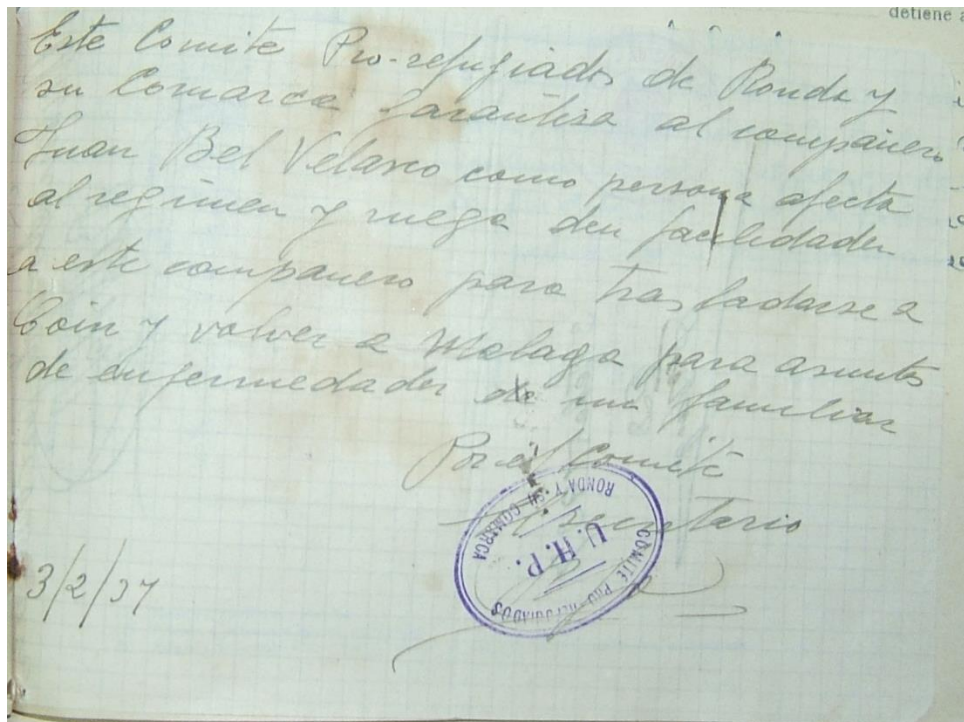 detiene a
Este Comite Pro-refugiados de Ronda y
su Comarca garantiza al compañero
Juan Bel Velasco como persona afecta
al regimen y ruega den facilidades
a este compañero para trasladarse a
Coin y volver a Malaga para asuntos
de enfermedades de un familiar
Por el Comité
El Secretario
COMITÉ PRO-REFUGIADOS
U.H.P.
RONDA Y SU COMARCA
3/2/37